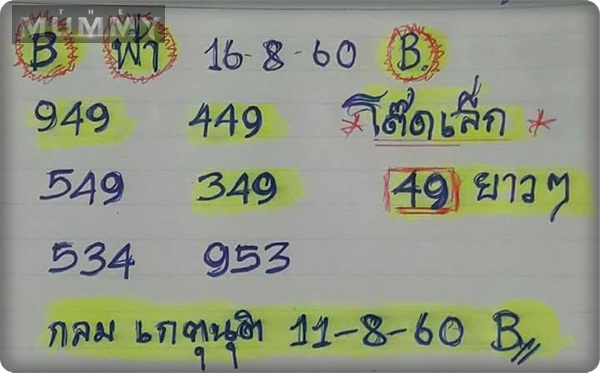 THE
MUMMY
B ฟ้า 16-8-60 B.
949 449 * โต๊ดเล็ก *
549 349 49 ยาวๆ
534 953
กลม เกตุนุติ 11-8-60 B